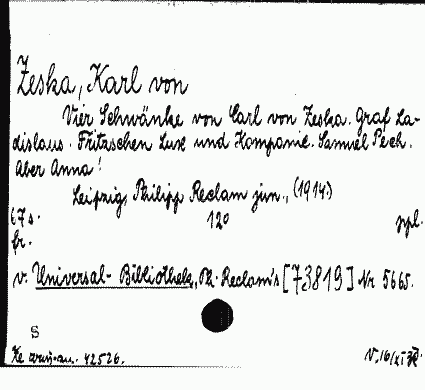 Zeska, Karl von
Vier Schwänke von Carl von Zeska. Graf La-
dislaus. Fritzschen Lux und Kompanie. Samuel Pech.
Aber Anna!
Leipzig, Philipp Reclam jun., (1914.)
67 s. 12° ppl.
fr.
v. Universal-Bibliothek, Ph. Reclam's [73819] Nr 5665.
S
42526.